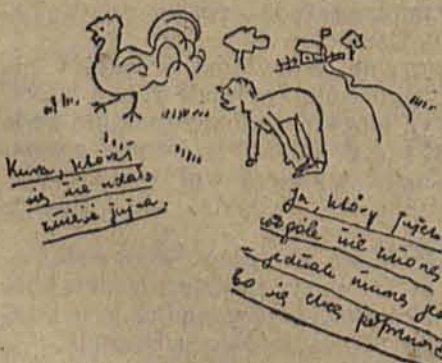 Kura, której
się nie udało
znieść jajka.
Ja, który jajek
wogóle nie znoszę
a jednak muszę
bo się chcę